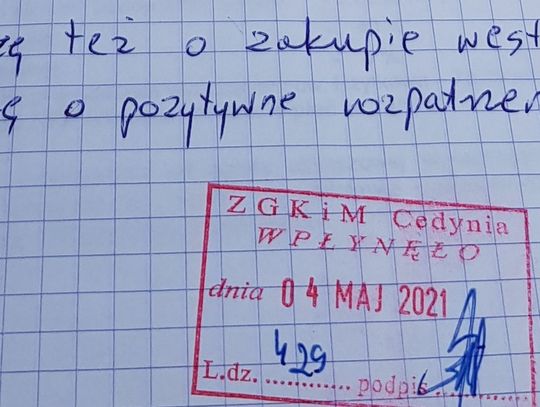 też o zakupie west
o pozytywne rozpatrzen
ZGKiM Cedynia
WPŁYNĘŁO
dnia 04 MAJ 2021
L.dz. 429 podpis